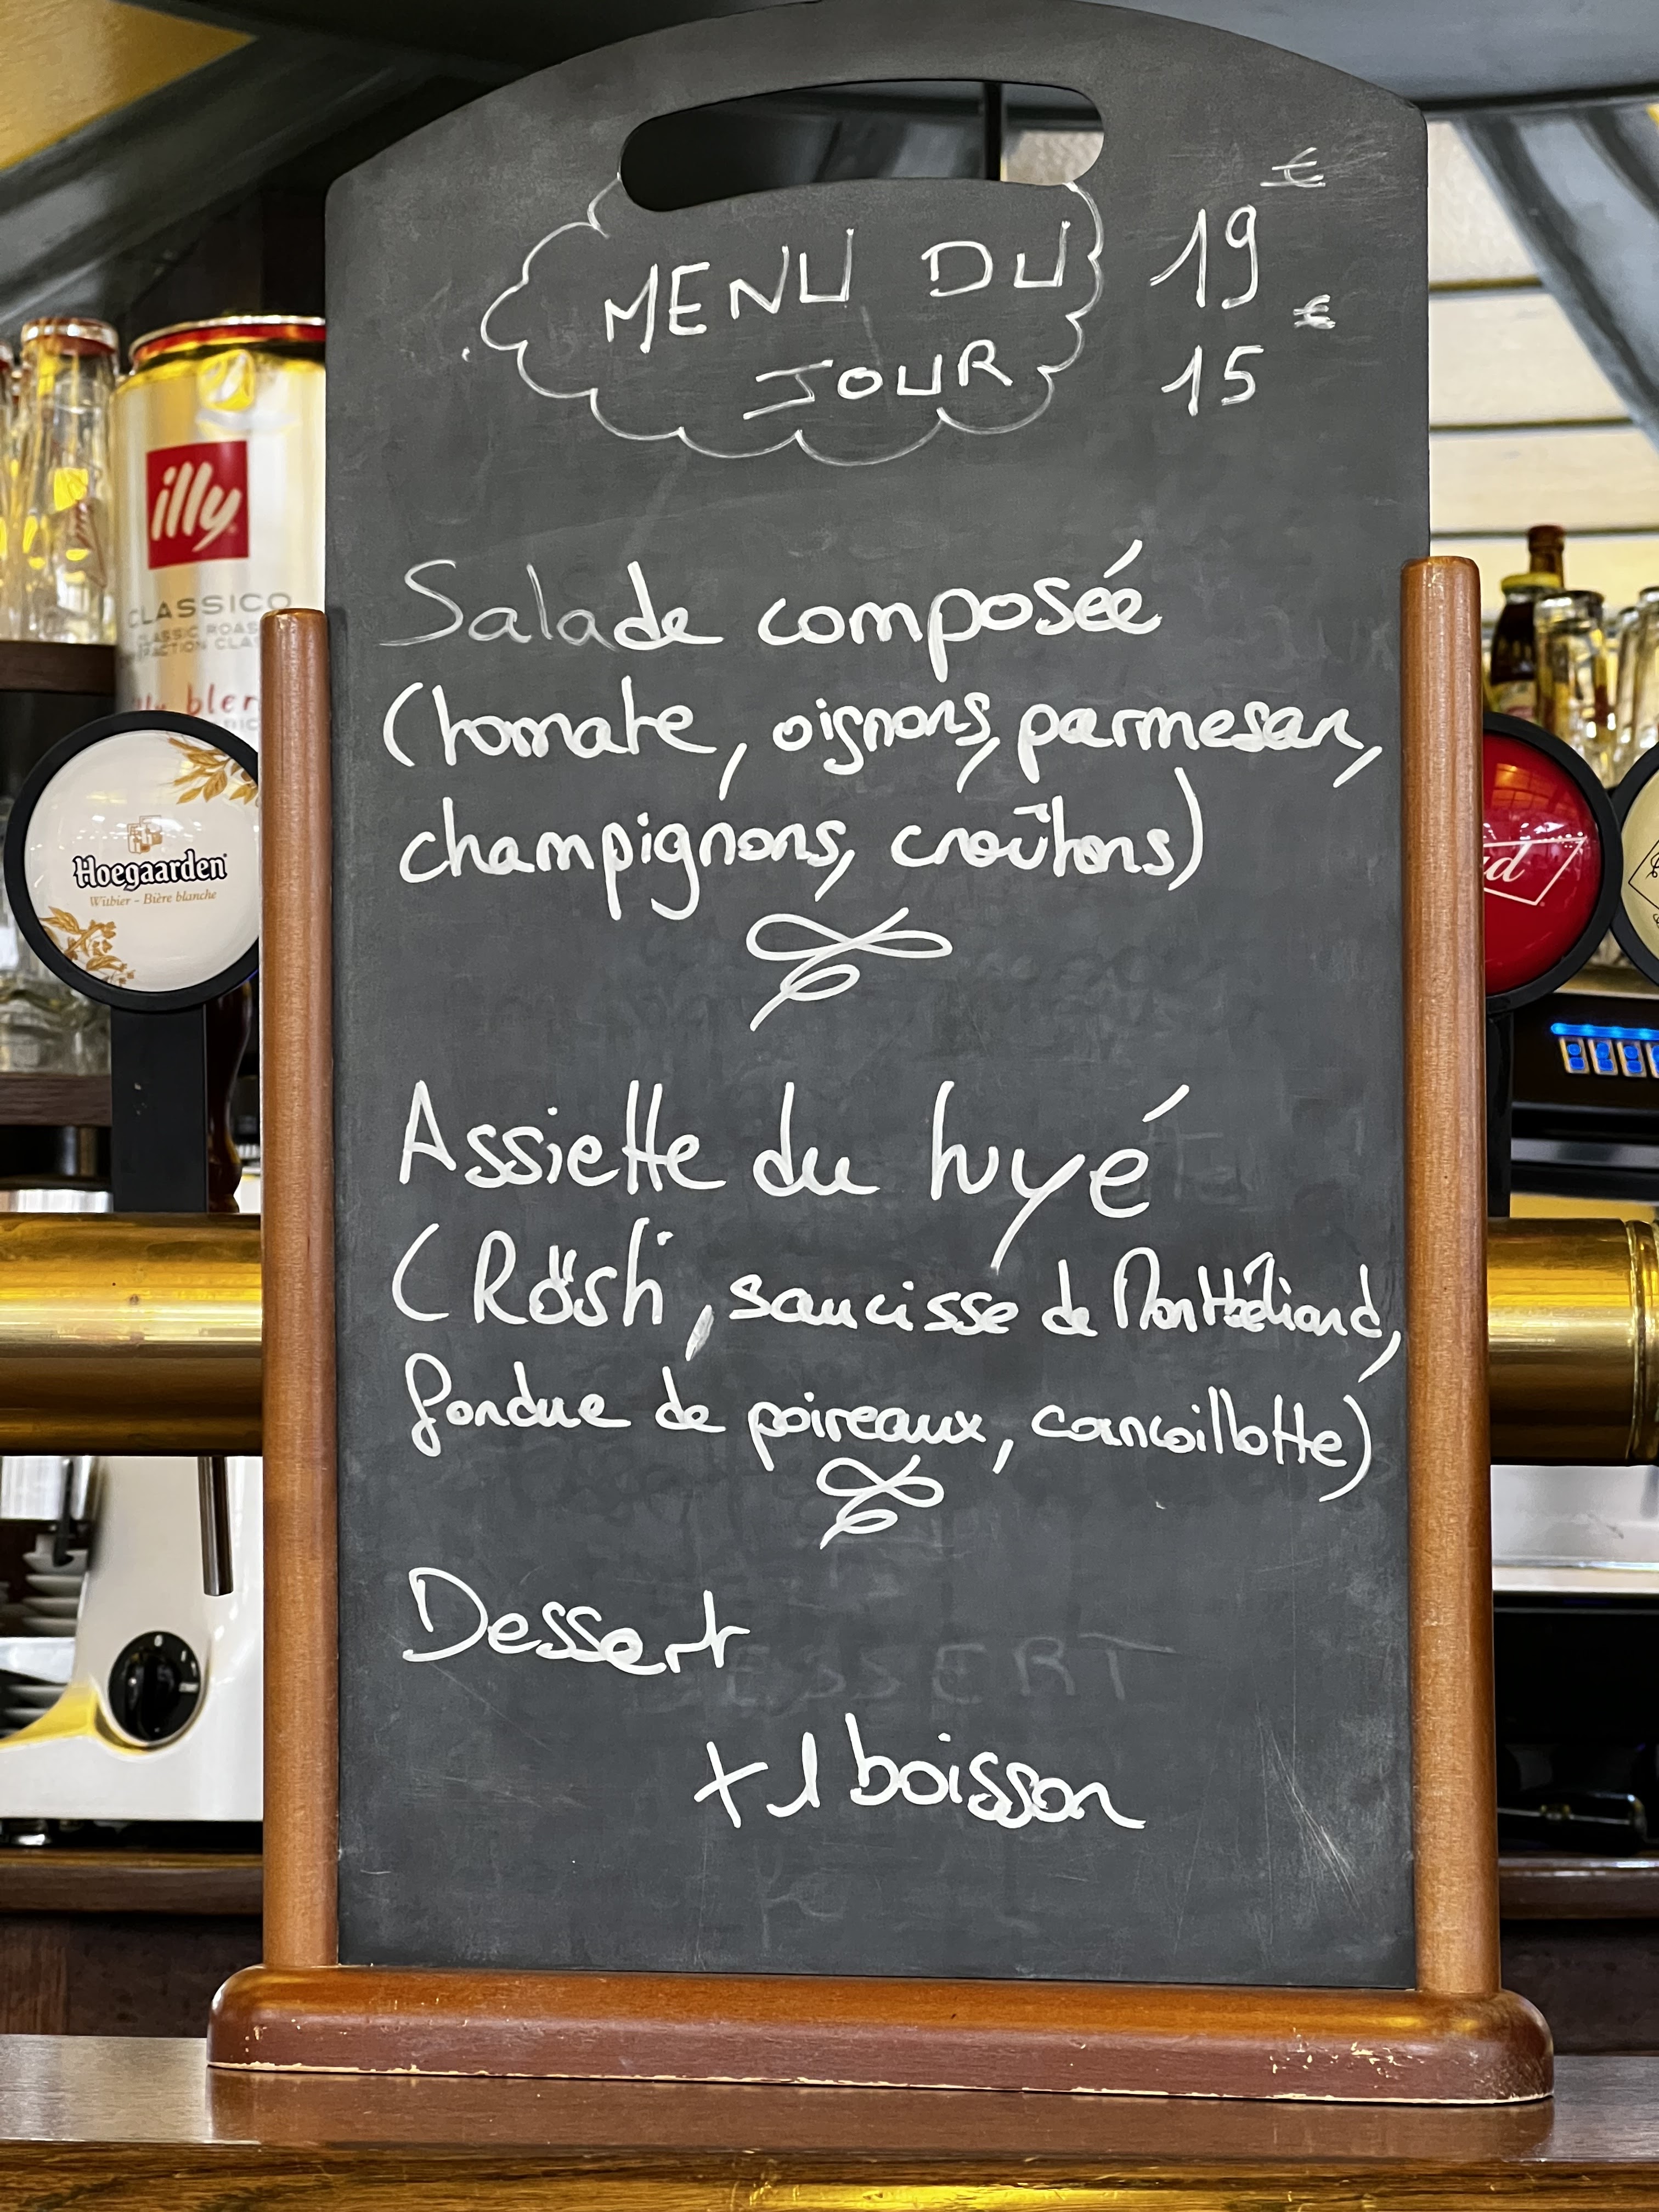 MENU DU
JOUR
19 €
15 €
Salade composée
(tomate, oignons, parmesan,
champignons, croûtons)
Assiette du tuyé
(Rösti, saucisse de Montbéliard,
fondue de poireaux, cancoillotte)
Dessert
ESSERT
+ 1 boisson
illy
CLASSICO
CLASSIC ROAS
illy blen
Hoegaarden
Witbier - Bière blanche